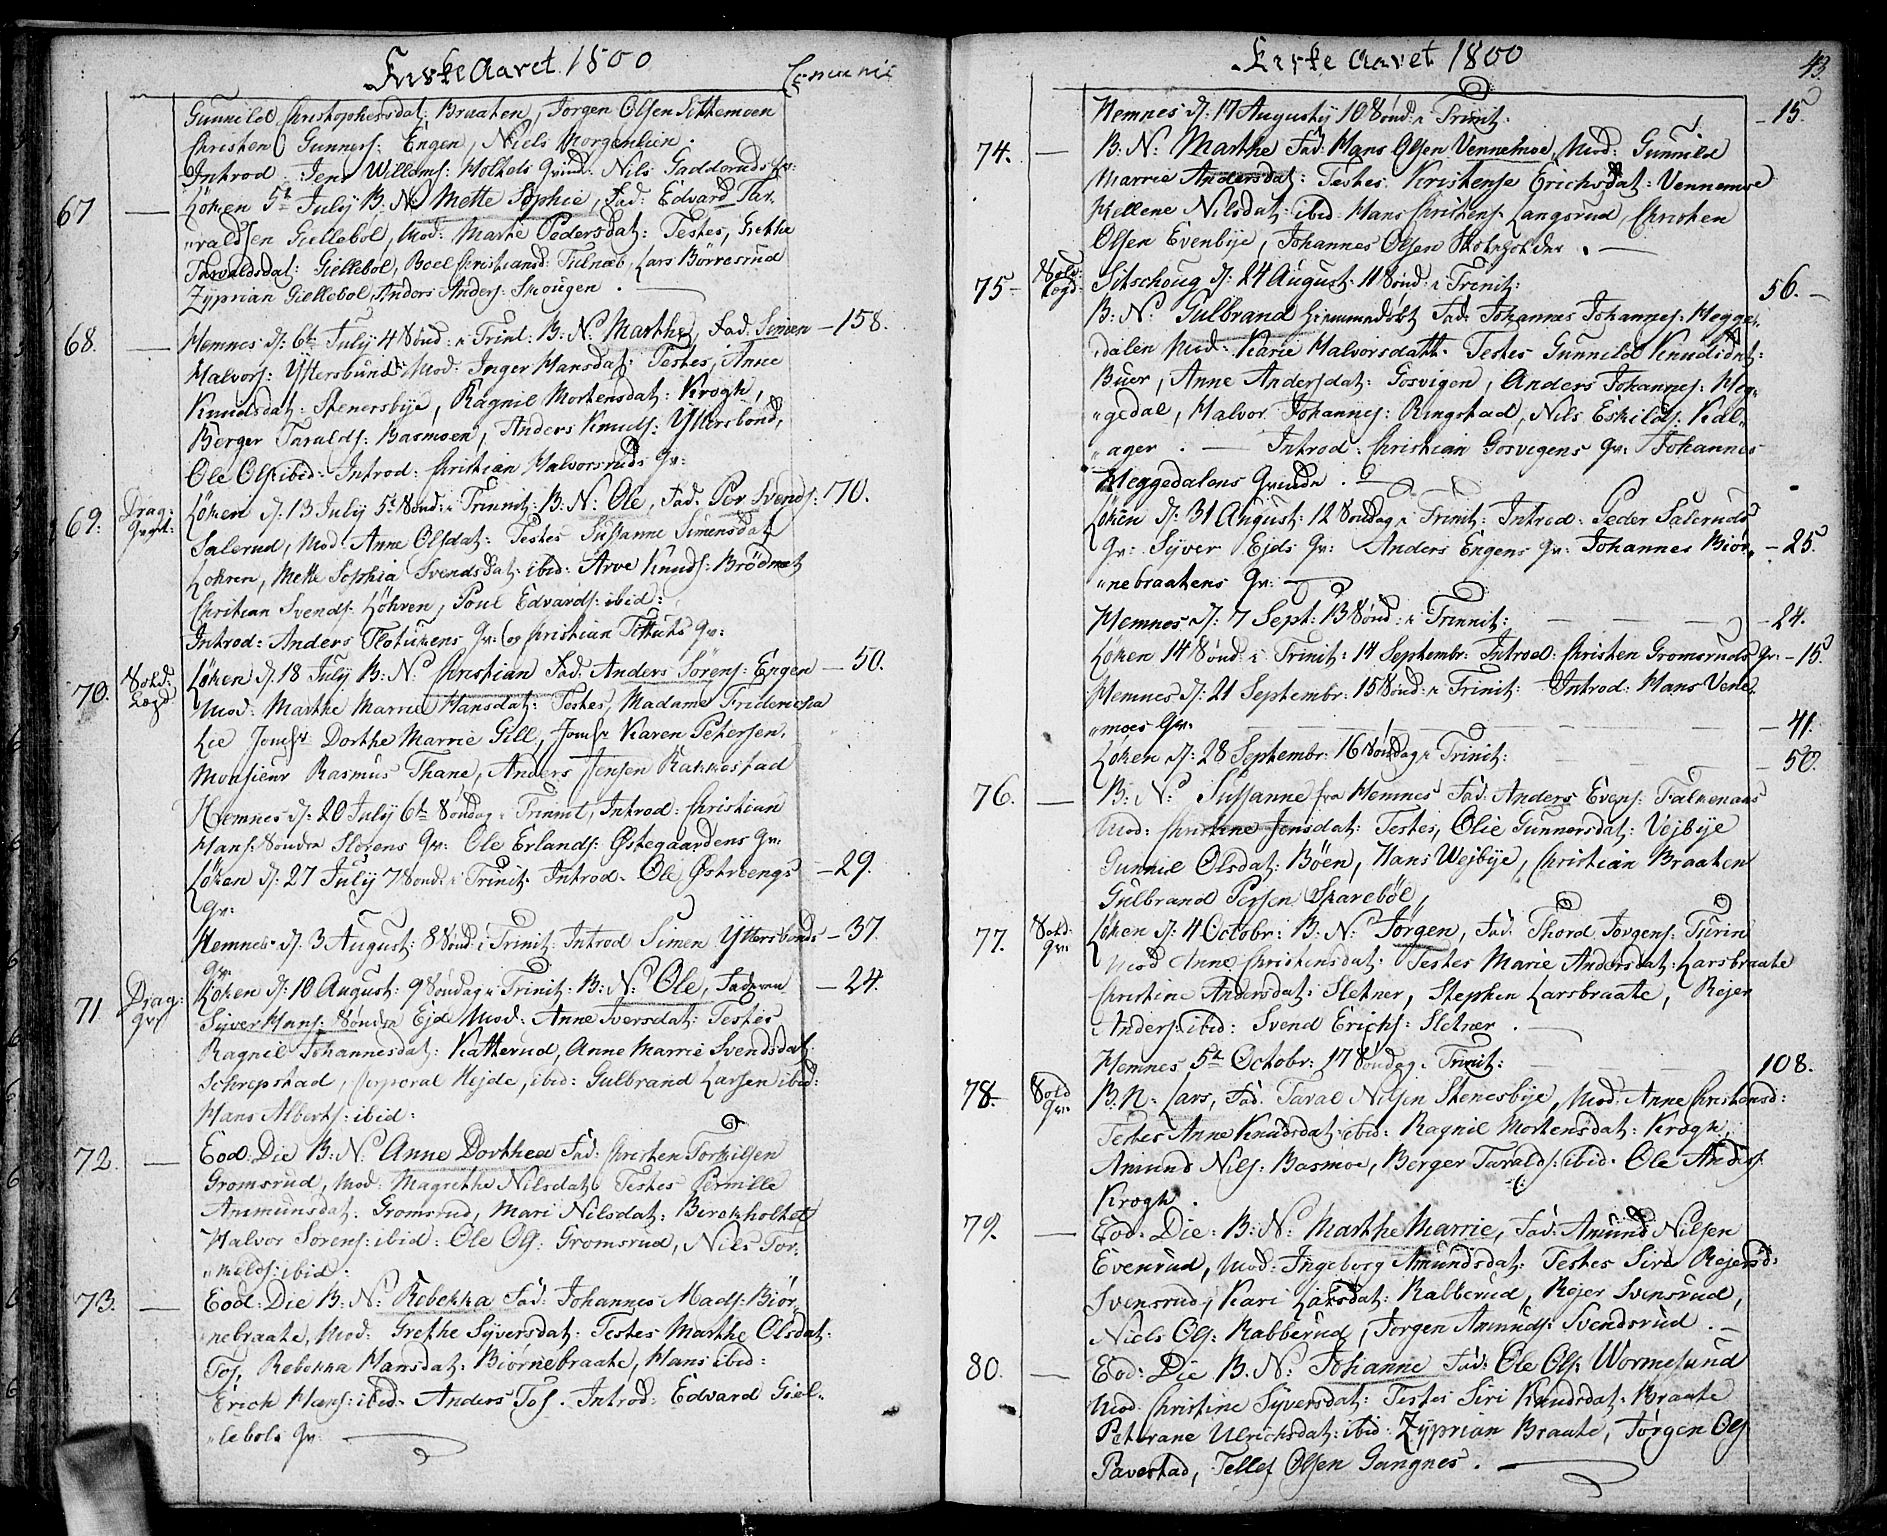 Kirke Aaret 1800
Communic
Gunnild Christophersdat: Braaten, Jørgen Olsen Sittemoen
Christen Gunners: Engen, Niels Morgenlien.
Introd. Jens Willums: Holtets Qvind: Nils Gaddoruds Qv:
67 — Löken 5t July B: N: Mette Sophie, Fad: Edvard Tar
"valdsen Giellebøl, Mod: Marte Pedersdat: Testes, Grethe
Tarvaldsdat: Giellebøl, Boel Christiansd: Tulnæb, Lars Börresrud
Zyprian Giellebøl, Anders Anders: Skougen.
68. — Hemnes d: 6t July 4 Sönd: n Trinit: B: N: Marthe, Fad: Simen — 158.
Halvors: Yttersbund: Mod: Inger Hansdat: Testes, Anne
Knudsdat: Stenersbye, Ragnil Mortensdat: Krogh,
Berger Taralds: Basmoen, Anders Knuds: Yttersbönd,
Ole Ols: ibid: Introd: Christian Halvorsruds Qv:
69. Drag: Qvart: Löken d: 13 July 5t Sönd: n Trinnit: B: N: Ole, Fad: Per Svends: 70.
Salerud, Mod: Anne Olsdat: Testes Sussanne Simensdat
Lohren, Mette Sophia Svendsdat: ibid: Arve Knuds: Brödmat
Christian Svends: Löhren, Poul Edvards: ibid:
Introd: Anders Flotukens Qv: og Christian Tittuts Qv:
70. Sold: Lægd Löken d: 18 July B: N: Christian Fad: Anders Sörens: Engen — 50.
Mod: Marthe Marrie Hansdat: Testes, Madame Fridericha
Lie Jomfr Dorthe Marrie Gill, Jomfr Karen Petersen,
Monsieur Rasmus Thane, Anders Jensen Rakkestad
Hemnes d: 20 July 6t Söndag n Trinnit, Introd: Christian
Hans: Söndre Slorens Qv: Ole Erlands: Østegaardens Qv:
Löken d: 27 July 7 Sönd: n Trinit: Introd: Ole Østreengs — 29.
Qv:
Hemnes d: 3 August: 8 Sönd: i Trinit: Introd Simen Yttersbonds — 37.
Qv:
71. Drag: Qv: Löken d: 10 August: 9 Söndag n Trinit: B: N: Ole, Faderen — 24.
Syver Hans: Söndre Ejde Mod: Anne Iversdat: Testes
Ragnil Johannesdat: Katterud, Anne Marrie Svendsdat:
Schrepstad, Corporal Hejde, ibid: Gulbrand Larsen ibid:
Hans Alberts: ibid:
72. — Eod: Die B: N: Anne Dorthea Fad: Christen Torkilsen
Gromsrud, Mod: Magrethe Nilsdat: Testes Pernille
Ammunsdat: Gromsrud, Mari Nilsdat: Berekholtet
Halvor Sorens: ibid: Ole Ols: Gromsrud, Niels Tor.
"kelds: ibid:
73. — Eod: Die B: N: Rebekka Fad: Johannes Mads: Biör
"nebraate, Mod: Grethe Syversdat: Testes Marthe Olsdat:
Tos, Rebekka Hansdat: Biørnebraate, Hans ibid:
Erich Hans: ibid: Anders Tos. Introd: Edvard Giel-
"lebols Qv:
Kirke Aaret 1800
43
Hemnes d: 17 Augusty 10 Sönd: n Trinit: — 15.
74. — B: N: Marthe Fad: Hans Olsen Vennemoe, Mod: Gunnild
Marrie Andersdat: Testes Kristense Erichsdat: Vennemoe
Hellene Nilsdat: ibid: Hans Christens: Langsrud, Christen
Olsen Evenbye, Johannes Olsen
75 — Sold: Lægd: Sitschoug d: 24 August. 11 Sönd: n Trinit: 56. —
B: N: Gulbrand hiemmedøbt Fad: Johannes Johannes: Hegge-
"dalen Mod: Karie Halvorsdatt. Testes Gunnild Knudsdat:
Buer, Anne Andersdat: Gosvigen, Anders Johannes: Heg-
"gedal, Halvor Johannes: Ringstad, Nils Eskilds: Kal-
"ager. — Introd: Christian Gosvigens Qv: Johannes
Heggedalens Qvinde.
Löken d: 31 August: 12 Söndag n Trinit: Introd: Peder Saleruds
Qv: Syver Ejds Qv: Anders Engens Qv: Johannes Biør- — 25.
"nebraatens Qv:
Hemnes d: 7 Sept: 13 Sönd: n Trinnit: — 24.
Löken 14 Sönd: n Trinit: 14 Septembr: Introd: Christen Gromsruds Qv: — 15.
Hemnes d: 21 Septembr: 15 Sönd: n Trinit: Introd: Hans Vene-
"moes Qv: — 41.
Löken d: 28 Septembr: 16 Söndag n Trinit: — 50.
76. — B: N: Sussanne fra Hemnes Fad: Anders Evens: Falkenaas
Mod: Christine Jensdat: Testes, Olie Gunnersdat: Vejbye
Gunnil Olsdat: Böen, Hans Wejbye, Christian Braaten
Gulbrand Persen Skarebøl,
77. Sold: Qv: Löken d: 4 Octobr: B: N: Jørgen, Fad: Thord Jørgens: Turin
Mod Anne Christensdat: Testes Marie Andersdat: Larsbraate
Christine Andersdat: Sletner, Stephen Larsbraate, Rejer
Anders: ibid: Svend Erichs: Sletner.
Hemnes 5t Octobr: 17 Söndag n Trinit: 108.
78. Sold Qv: B: N: Lars, Fad: Taral Nilsen Stenesbye, Mod: Anne Christensd:
Testes Anne Knudsdat: ibid: Ragnil Mortensdat: Krogh,
Amund Nils: Basmoe, Berger Taralds: ibid: Ole Anders:
Krogh.
79. — Eod: Die: B: N: Marthe Marrie, Fad: Amund Nilsen
Evenrud, Mod: Ingeborg Amundsdat: Testes Siri Rejersd:
Svensrud, Kari Larsdat: Rabberud, Rejer Svensrud,
Niels Ols: Rabberud, Jørgen Amunds: Svendsrud.
80. — Eod: Die B. N: Johanne Fad: Ole Ols: Wormesund
Mod: Christine Syversdat: Testes Siri Knudsdat: Braate
Petterane Ulrichsdat: ibid: Zyprian Braate, Jørgen Ols:
Taverstad, Tellef Olsen Gangnes.